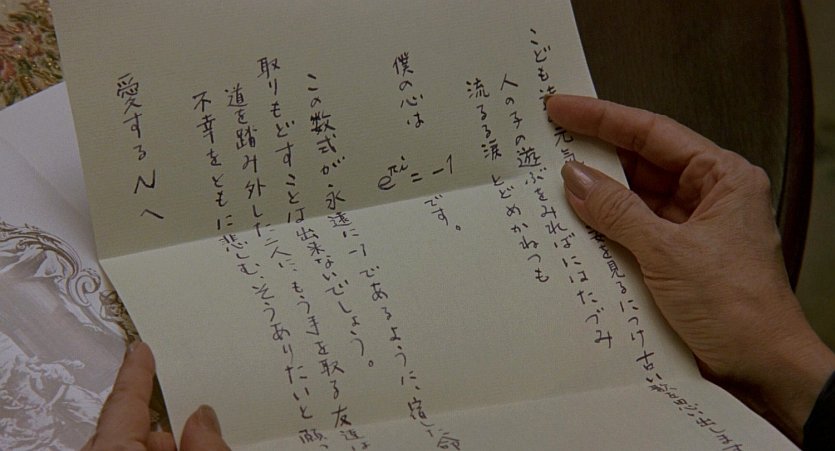 こども達 元気 姿を見るにつけ古い
人の子の遊ぶをみればにはたづみ
流るる涙 とどめかねつも
僕の心は e^πi = -1 です。
この数式が永遠に-1であるように、宿した命
取りもどすことは出来ないでしょう。
道を踏み外した二人に、もう手を取る友達は
不幸をともに悲しむ、そうありたいと願っ
愛するNへ